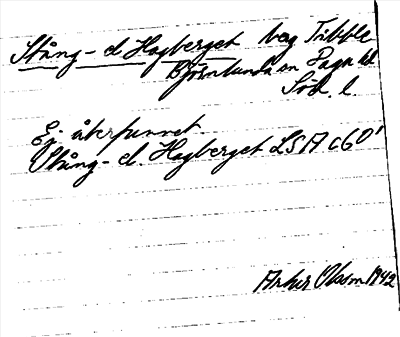 Stång- el. Hagberget berg Tibble
Björnlunda sn Daga hd
Söd. l.
Ej återfunnet.
Stång- el. Hagberget LSA C60¹
Artur Olsson 1942